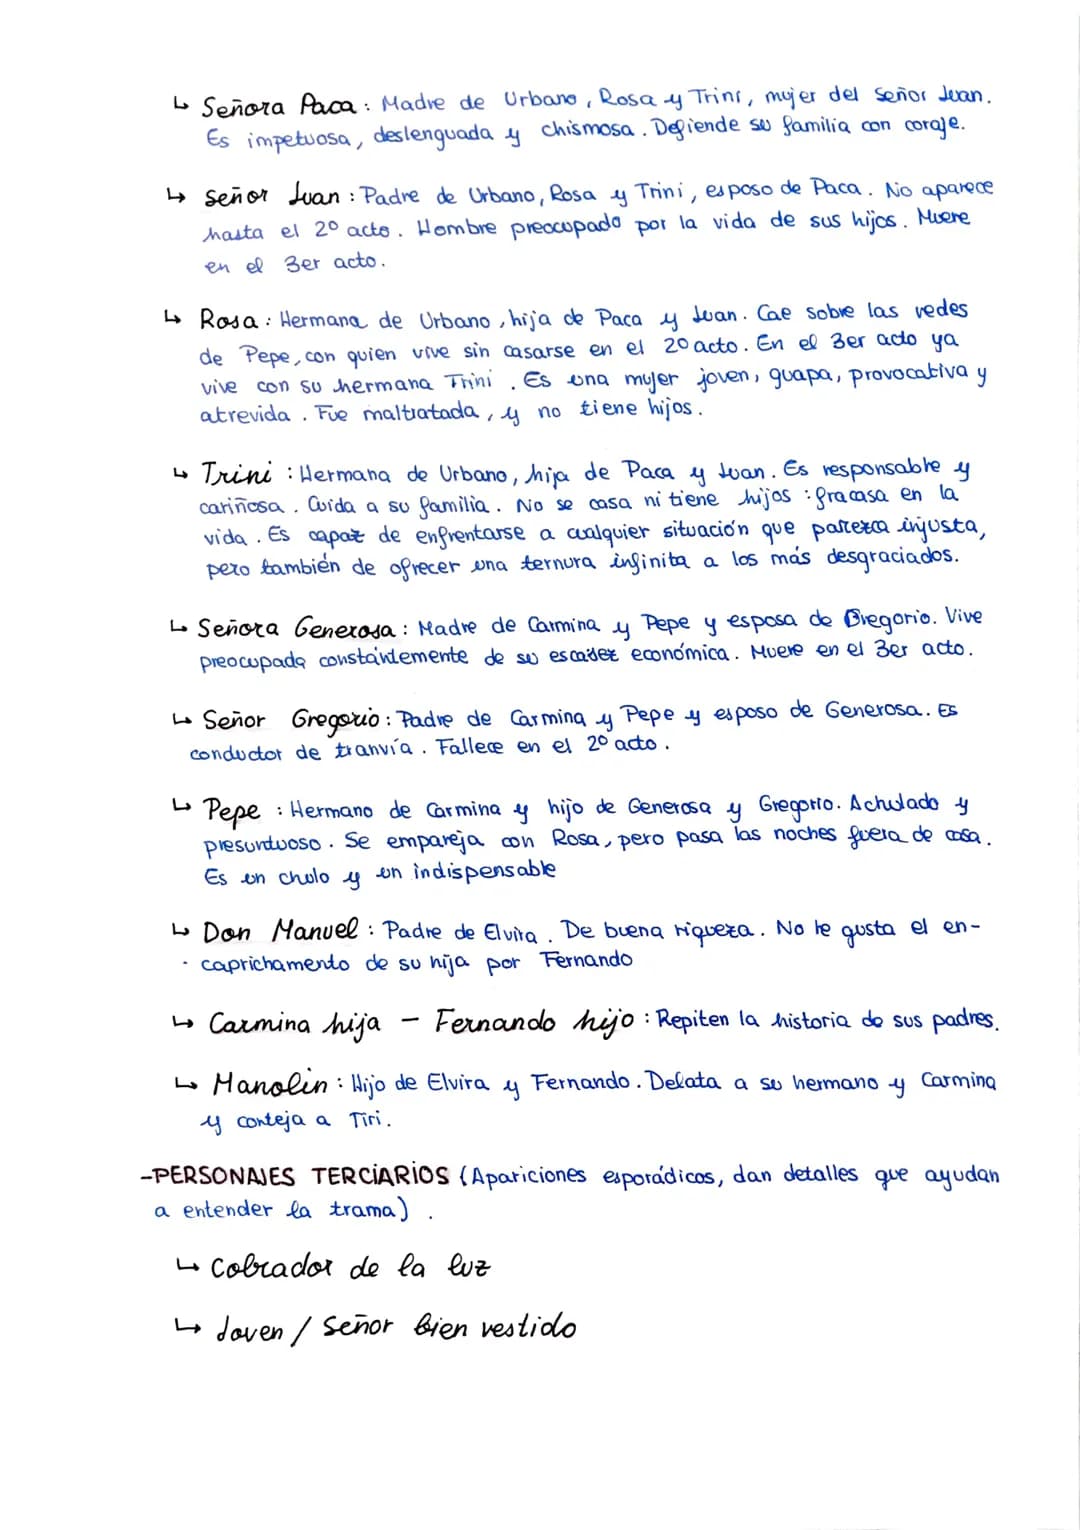 ↳ Señora Paca: Madre de Urbano, Rosa y Trini, mujer del señor Juan.
Es impetuosa, deslenguada y chismosa. Defiende su familia con coraje.
↳ Señor Juan: Padre de Urbano, Rosa y Trini, esposo de Paca. No aparece
hasta el 2º acto. Hombre preocupado por la vida de sus hijos. Muere
en el 3er acto.
↳ Rosa: Hermana de Urbano, hija de Paca y Juan. Cae sobre las redes
de Pepe, con quien vive sin casarse en el 2º acto. En el 3er acto ya
vive con su hermana Trini. Es una mujer joven, guapa, provocativa y
atrevida. Fue maltratada, y no tiene hijos.
↳ Trini: Hermana de Urbano, hija de Paca y Juan. Es responsable y
cariñosa. Cuida a su familia. No se casa ni tiene hijos: fracasa en la
vida. Es capaz de enfrentarse a cualquier situación que parezca injusta,
pero también de ofrecer una ternura infinita a los más desgraciados.
↳ Señora Generosa: Madre de Carmina y Pepe y esposa de Gregorio. Vive
preocupada constantemente de su escadez económica. Muere en el 3er acto.
↳ Señor Gregorio: Padre de Carmina y Pepe y esposo de Generosa. Es
conductor de tranvía. Fallece en el 2º acto.
↳ Pepe: Hermano de Carmina y hijo de Generosa y Gregorio. Achulado y
presuntuoso. Se empareja con Rosa, pero pasa las noches fuera de casa.
Es un chulo y un indispensable
↳ Don Manuel: Padre de Elvira. De buena riqueza. No le gusta el en-
caprichamento de su hija por Fernando
↳ Carmina hija - Fernando hijo: Repiten la historia de sus padres.
↳ Manolin: Hijo de Elvira y Fernando. Delata a su hermano y Carmina
y corteja a Tiri.
-PERSONAJES TERCIARIOS (Apariciones esporádicas, dan detalles que ayudan
a entender la trama).
↳ Cobrador de la luz
↳ Joven / Señor bien vestido